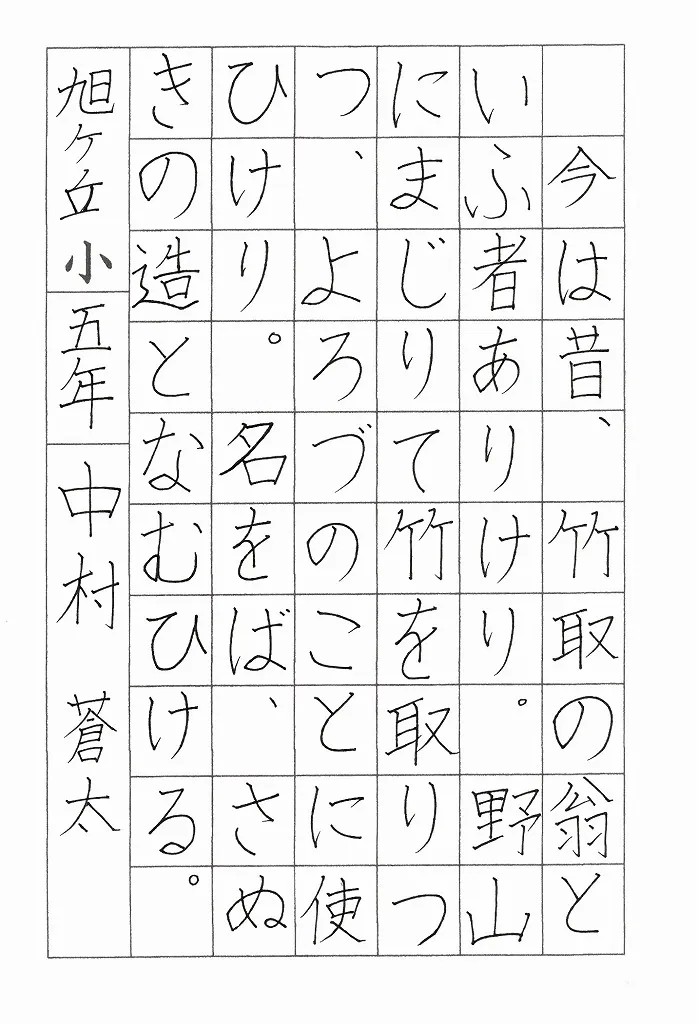 今は昔、竹取の翁と
いふ者ありけり。野山
にまじりて竹を取りつ
つ、よろづのことに使
ひけり。名をば、さぬ
きの造となむひける。
旭ヶ丘小 五年 中村 蒼太